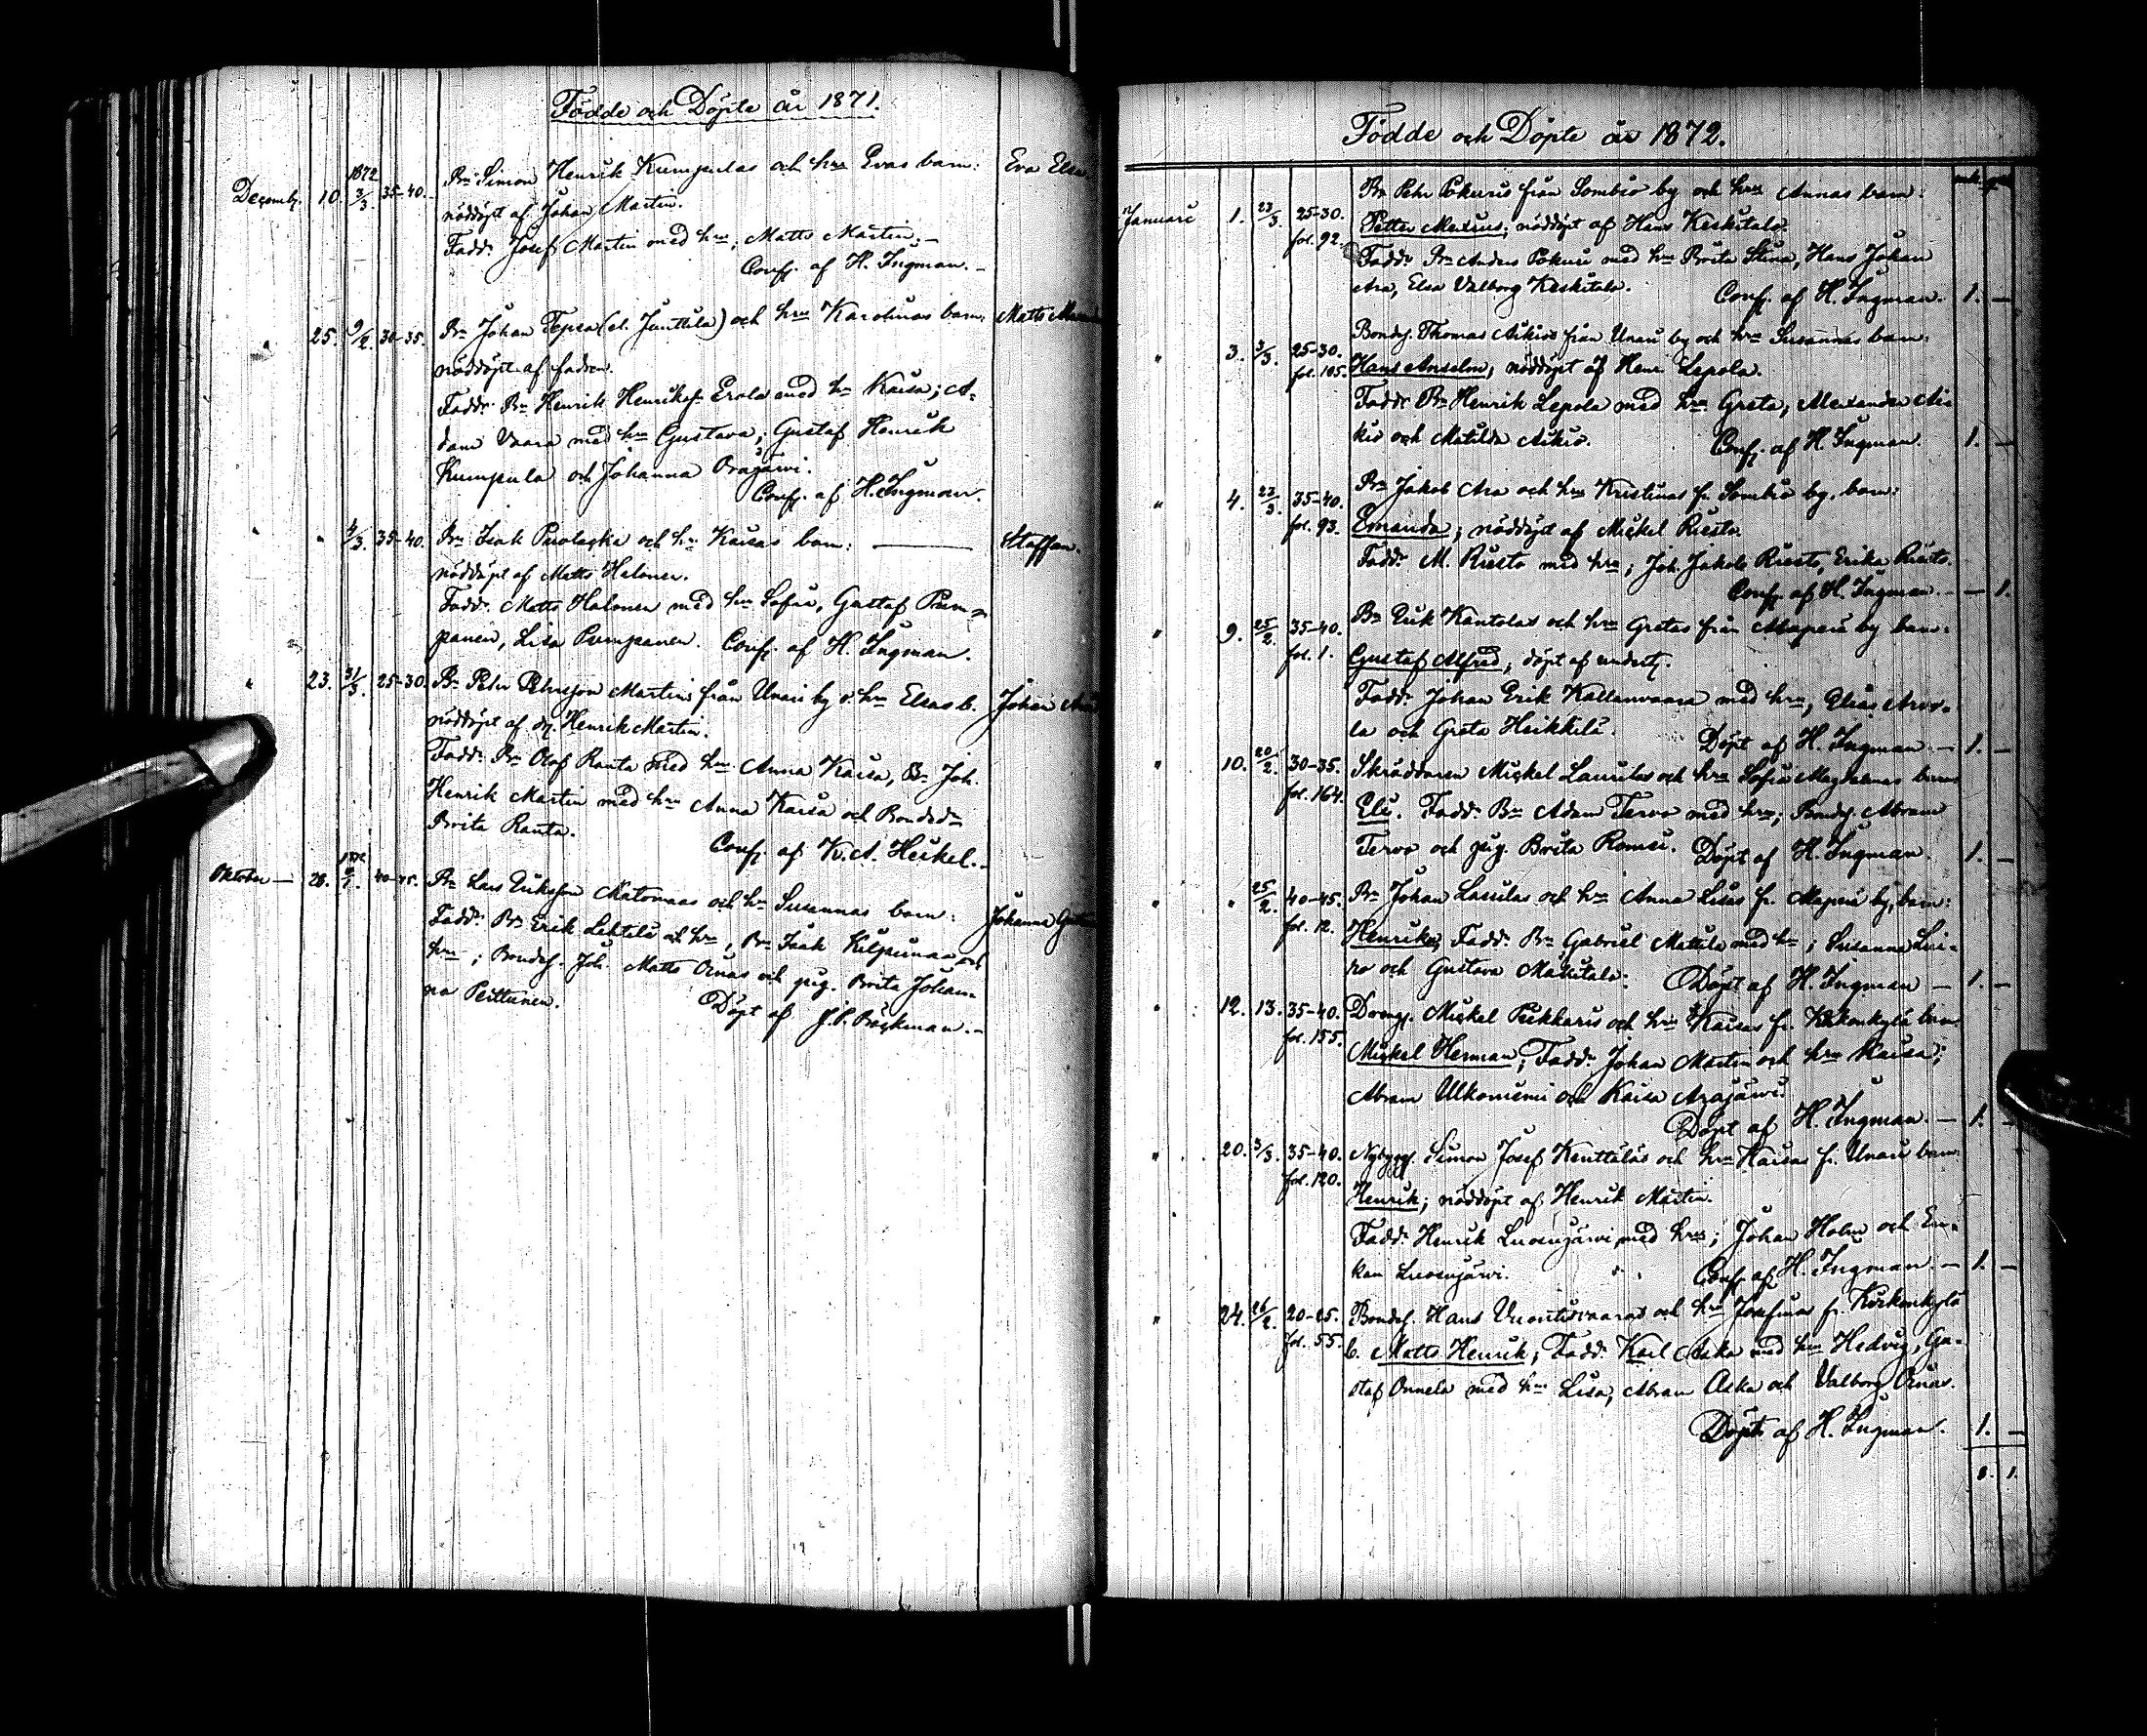 Födde och Döpte år 1871.
1872
Decemb. 10. 3/3. 35-40. Bn Simon Henrik Kumpulas och hns Evas barn: Eva Elsa
nöddöpt af Johan Martin.
Fadd: Josef Martin med hu; Matts Martin. –
Conf. af H. Ingman. –
" 25. 9/2. 30-35. Bn Johan Tepsa (el. Junttila) och hns Karolinas barn: Matts
nöddöpt af fadren.
Fadd: Bn Henrik Henrikss. Erola med hu Kaisa; A-
dam Vaara med hu Gustava; Gustaf Henrik
Kumpula och Johanna Orajärvi.
Conf. af H. Ingman.
" " 4/3. 35-40. Bn Isak och hns Kaisas barn: Staffan.
nöddöpt af Matts Halonen.
Fadd: Matts Halonen med hu Sofia, Gustaf Pum-
panen, Lisa Pumpanen. Conf. af H. Ingman.
" 23. 31/3. 25-30. Bn Petter Pehrsson Martins från Unari by o. hns Elsas b. Johan
nöddöpt af dg. Henrik Martin.
Fadd: Bn Olof Ranta med hu Anna Kaisa, Bn Joh.
Henrik Martin med hu Anna Kaisa och Bonded.
Brita Ranta.
Conf. af K. A. Heikel. –
1872
Oktober – 28. 40-45. Bn Lars Eriksson Matomaas och hns Susannas barn: Johanna
Fadd: Bn Erik Lehtelä och hu, Bn Isak Kilpimaa och
hu; Bondes. Joh. Matts Oinas och pig. Brita Johan-
na Peittunen.
Döpt af J. P. Bäckman. –
Födde och Döpte år 1872.
mk. p.
Januarii 1. 23/3. 25-30. Bn Petr Pokuris från Sombio by och hns Annas barn:
fol. 92. Petter Alexius; nöddöpt af Hans Keskitalo.
Fadd: Bn Anders Pokuri med hu Brita Stina, Hans Johan
Ara, Elsa Valborg Keskitalo. Conf. af H. Ingman. 1. –
" 3. 3/3. 25-30. Bondes. Thomas Aikios från Unari by och hns Susannas barn:
fol. 105. Hans Anselm; nöddöpt af Henr. Lepola.
Fadd: Bn Henrik Lepola med hu Greta, Alexander Ai-
kio och Matilda Aikio. Conf. af H. Ingman. 1. –
" 4. 23/3. 35-40. Bn Jakob Ara och hns Kristinas fr. Sombio by, barn:
fol. 93. Emanda; nöddöpt af Mickel Riesto.
Fadd: M. Riesto med hu; Joh. Jakob Riesto, Erika Riesto.
Conf. af H. Ingman. – – 1.
" 9. 25/2. 35-40. Bn Erik Kantolas och hns Gretas från Alaperä by barn:
fol. 1. Gustaf Alfred, döpt af undert.
Fadd: Johan Erik Kallanvaara med hu, Elias Arvo-
la och Greta Heikkilä. Döpt af H. Ingman. – 1. –
" 10. 20/2. 30-35. Skräddaren Mickel Laurilas och hns Sofia Magdalenas barn:
fol. 164. Eli. Fadd: Bn Adam Tervo med hu; Bondes. Abram
Tervo och pig. Brita Romsi. Döpt af H. Ingman. 1. –
" " 25/2. 40-45. Bn Johan Lassilas och hns Anna Lisas fr. Alaperä by, barn:
fol. 12. Henrika; Fadd: Bn Gabriel Mattila med hu; Susanna Lui-
ro och Gustava Mäkitalo. Döpt af H. Ingman – 1. –
" 12. 13. 35-40. Dreng. Mickel Pekkaris och hns Kaisas fr. Kirkonkylä barn:
fol. 155. Mickel Herman; Fadd: Johan Martin och hu Kaisa;
Abram Ulkoniemi och Kaisa Arajärvi.
Döpt af H. Ingman. – 1. –
" 20. 3/3. 35-40. Nybygg. Simon Josef Kenttäläs och hns Kaisas fr. Unari barn:
fol. 120. Henrik; nöddöpt af Henrik Martin.
Fadd: Henrik Luosujärvi med hu; Johan Holm och En-
kan Luosujärvi. Conf. af H. Ingman. – 1. –
" 24. 26/2. 20-25. Bondes. Hans Vuontisvaaras och hns Josefinas fr. Kirkonkylä
fol. 55. b. Matts Henrik; Fadd: Karl Aska med hu Hedvig, Gu-
staf Onnela med hu Lisa; Abram Aska och Valborg Oinas.
Döpt af H. Ingman. 1. –
8. 1.